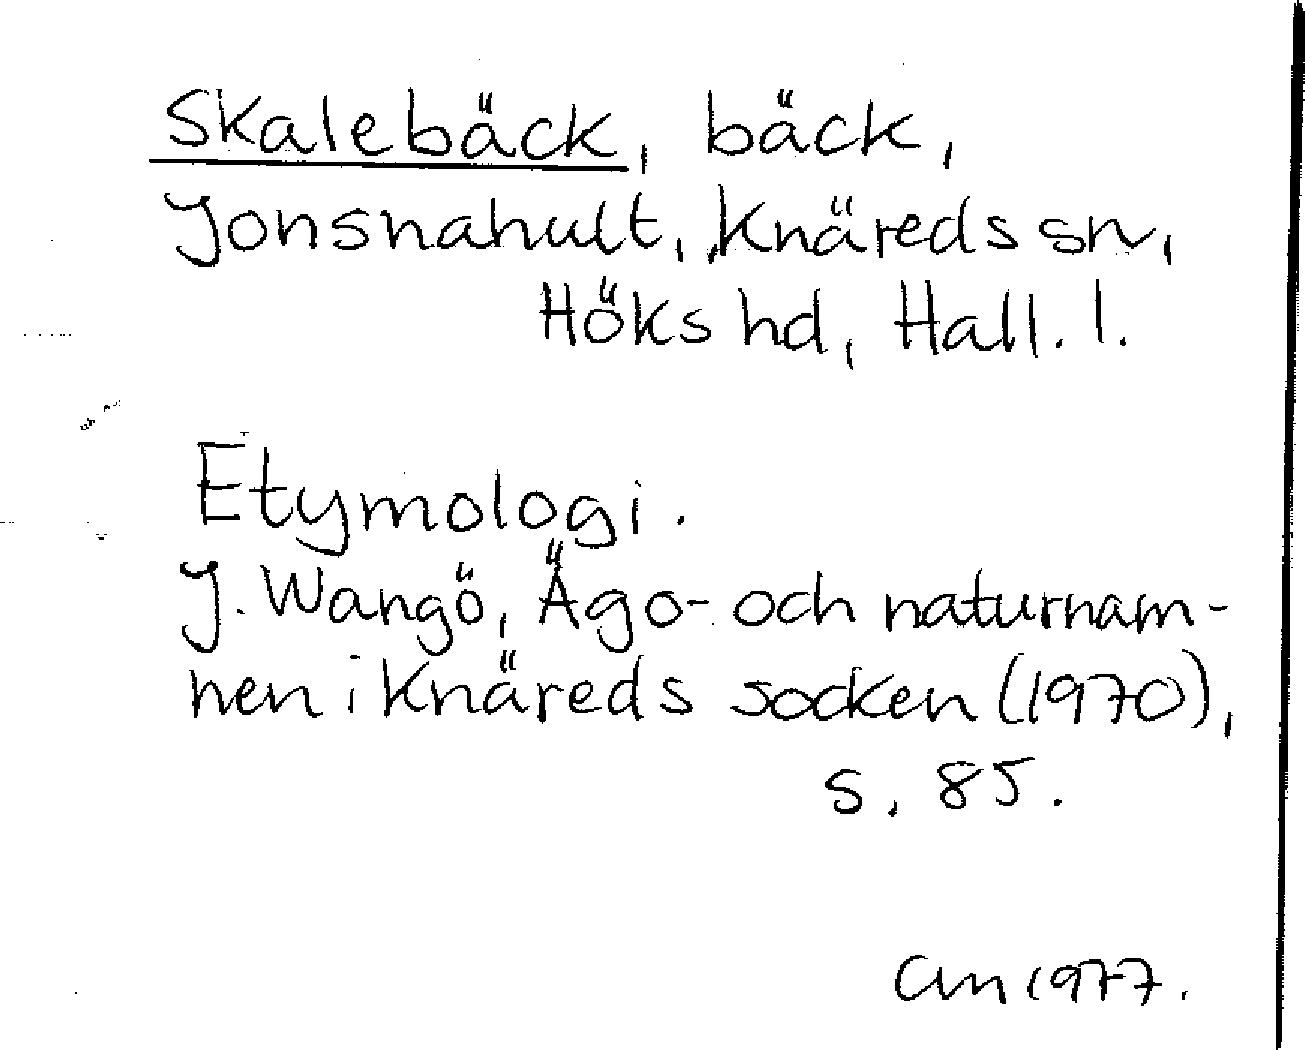 Skalebäck, bäck,
Jonsnahult, Knäreds sn,
Höks hd, Hall. l.
Etymologi.
J. Wangö, Ägo- och naturnam-
nen i Knäreds socken (1970),
s. 85.
CM 1977.